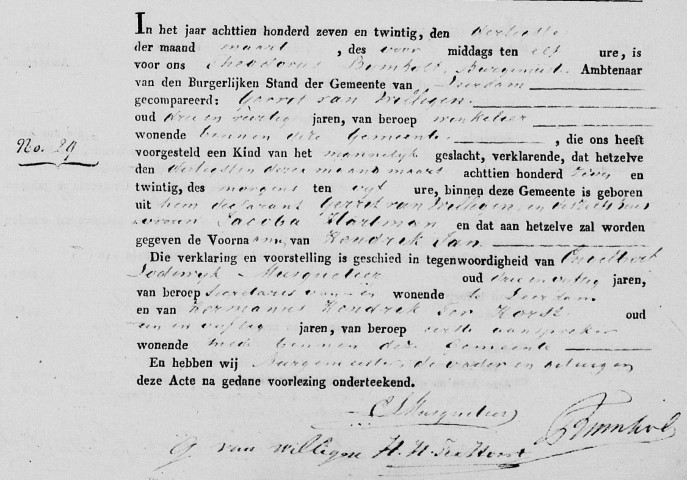 In het jaar achttien honderd zeven en twintig, den dertienste
der maand maart , des voor middags ten elf ure, is
voor ons Theodorus Bomhoff, Burgemeester Ambtenaar
van den Burgerlijken Stand der Gemeente van Leerdam
gecompareerd: Gerrit van Willigen
oud drie en veertig jaren, van beroep winkelier
wonende binnen deze Gemeente , die ons heeft
No. 29
voorgesteld een Kind van het mannelijk geslacht, verklarende, dat hetzelve
den dertienste dezer maand maart achttien honderd zeven en
twintig, des morgens ten vijf ure, binnen deze Gemeente is geboren
uit hem declarant Gerrit van Willigen, en deszelfs huis
vrouw Jacoba Hartman en dat aan hetzelve zal worden
gegeven de Voorna am, van Hendrik Jan
Die verklaring en voorstelling is geschied in tegenwoordigheid van
Lodewijk Musquetier oud drie en jaren,
van beroep Secretaris van en wonende te Leerdam
en van Hermanus Hendrik Ter Horst oud
een en vijftig jaren, van beroep eerste aanspreker
wonende mede binnen deze Gemeente
En hebben wij Burgemeester, de vader en getuigen
deze Acte na gedane voorlezing onderteekend.
C L Musquetier
G. van willigen H. H. Ter Horst